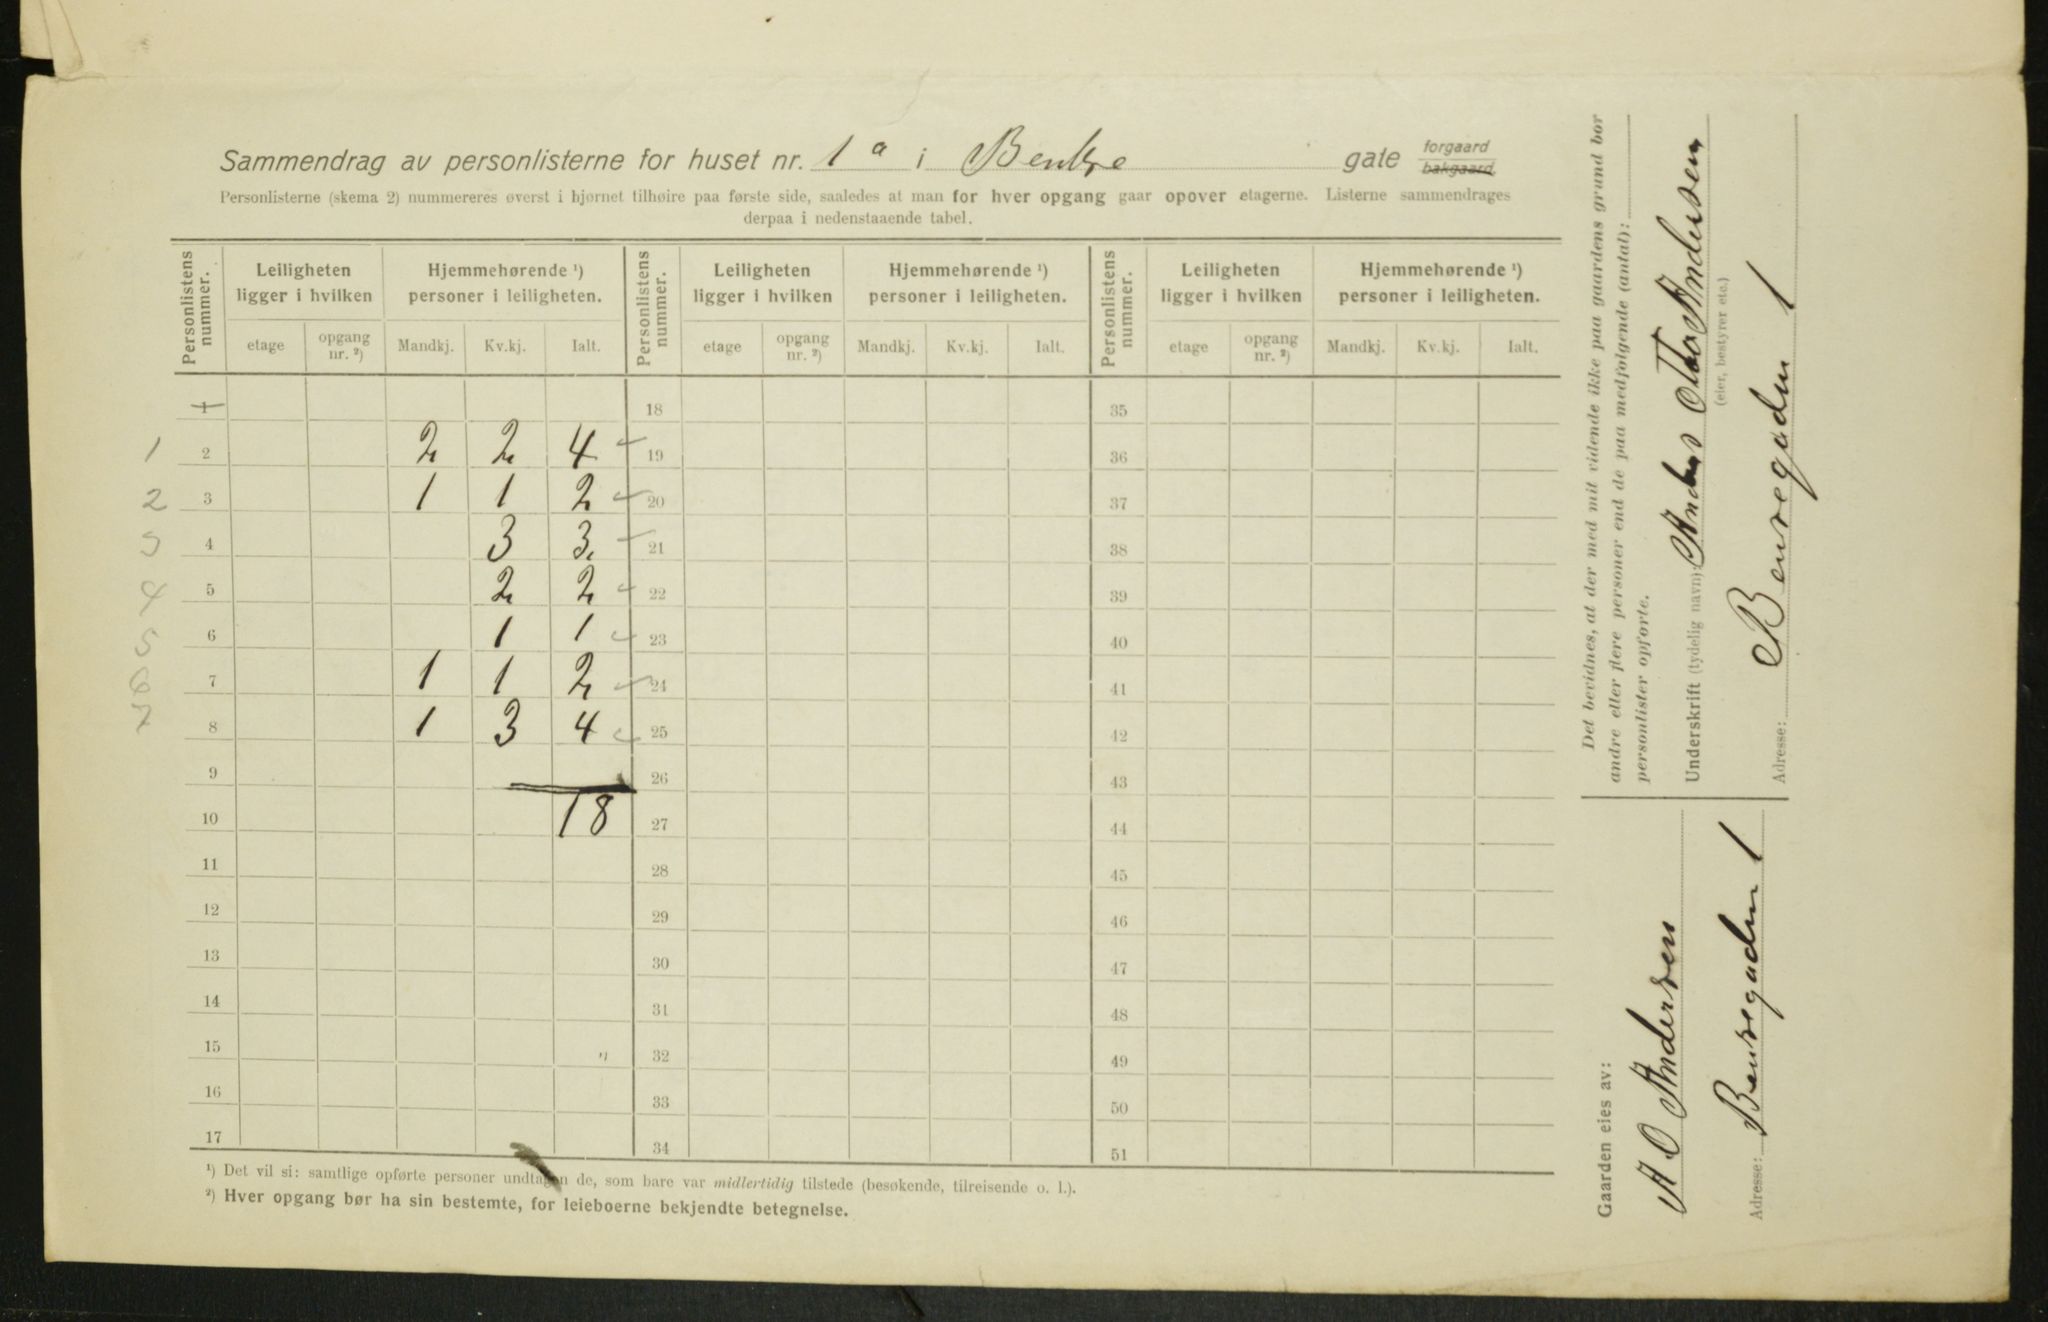 Sammendrag av personlisterne for huset nr. 1a i Bentse gate forgaard bakgaard
Personlisterne (skema 2) nummereres øverst i hjørnet tilhøire paa første side, saaledes at man for hver opgang gaar opover etagerne. Listerne sammendrages
derpaa i nedenstaaende tabel.
Personlistens nummer. Leiligheten ligger i hvilken Hjemmehørende ¹) personer i leiligheten. Personlistens nummer. Leiligheten ligger i hvilken Hjemmehørende ¹) personer i leiligheten. Personlistens nummer. Leiligheten ligger i hvilken Hjemmehørende ¹) personer i leiligheten.
etage opgang nr. ²) Mandkj. Kv.kj. Ialt. etage opgang nr. ²) Mandkj. Kv.kj. Ialt. etage opgang nr. ²) Mandkj. Kv.kj. Ialt.
1 18 35
1 2 2 2 4 19 36
2 3 1 1 2 20 37
3 4 3 3 21 38
4 5 2 2 22 39
5 6 1 1 23 40
6 7 1 1 2 24 41
7 8 1 3 4 25 42
9 26 43
10 18 27 44
11 28 45
12 29 46
13 30 47
14 31 48
15 " 32 49
16 33 50
17 34 51
¹) Det vil si: samtlige opførte personer undtagen de, som bare var midlertidig tilstede (besøkende, tilreisende o. l.).
²) Hver opgang bør ha sin bestemte, for leieboerne bekjendte betegnelse.
Det bevidnes, at der med mit vidende ikke paa gaardens grund bor
andre eller flere personer end de paa medfølgende (antal):
personlister opførte.
Underskrift (tydelig navn): Anders Otto Andersen
(eier, bestyrer etc.)
Adresse: Bensegaden 1
Gaarden eies av:
A O Andersen
Adresse: Bensegaden 1